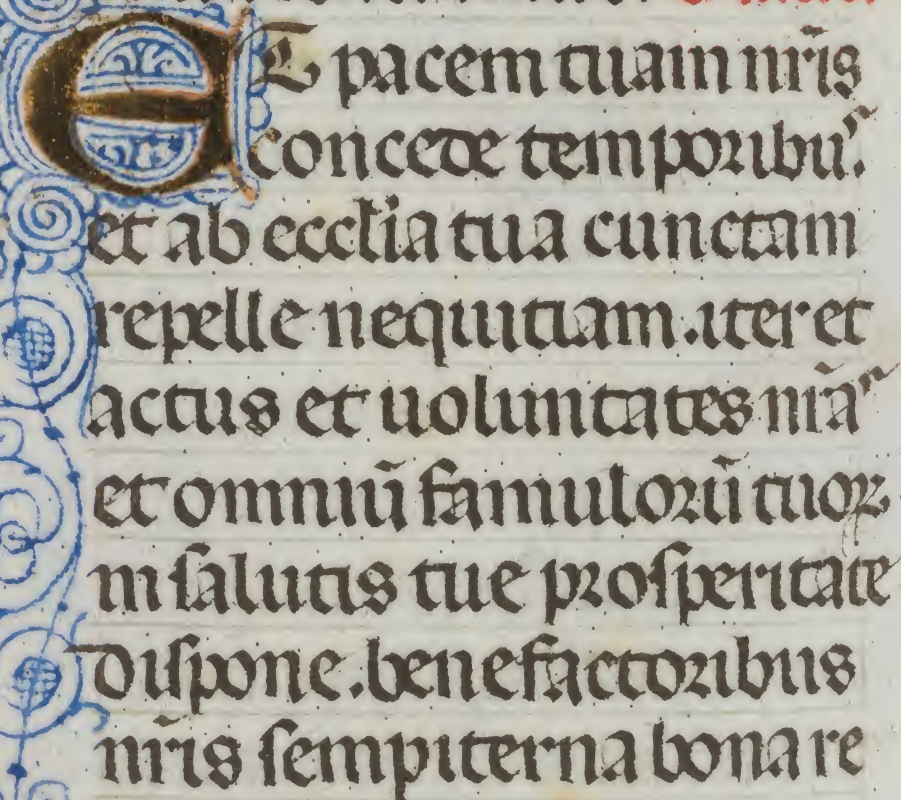 ET pacem tuam nr̄is
concede temporibu᷒.
et ab eccl̄ia tua cunctam
repelle nequitiam. iter et
actus et uoluntates nr̄aˢ
et omniū famulorū tuoꝝ
in salutis tue prosperitate
dispone. benefactoribus
nr̄is sempiterna bona re